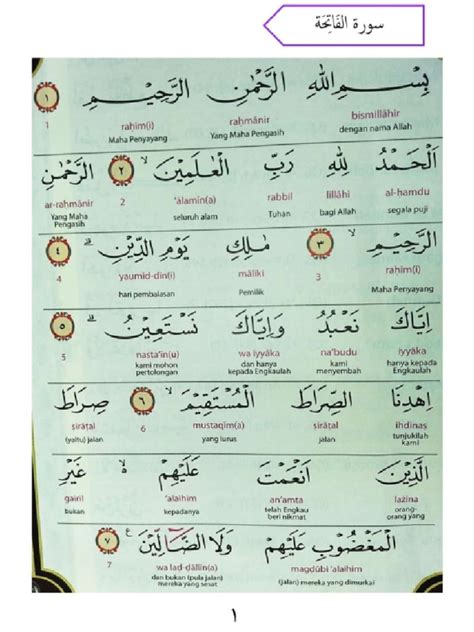 سورة الفَاتِحَة
بِسْمِ اللهِ الرَّحْمٰنِ الرَّحِيْمِ ١
bismillāhir rahmānir rahīm(i) 1
dengan nama Allah Yang Maha Pengasih Maha Penyayang
اَلْحَمْدُ لِلّٰهِ رَبِّ الْعٰلَمِيْنَۙ ٢ الرَّحْمٰنِ
al-hamdu lillāhi rabbil ‘ālamīn(i) 2 ar-rahmānir
segala puji bagi Allah Tuhan seluruh alam Yang Maha Pengasih
الرَّحِيْمِۙ ٣ مٰلِكِ يَوْمِ الدِّيْنِۗ ٤
rahīm(i) 3 māliki yaumid-dīn(i) 4
Maha Penyayang Pemilik hari pembalasan
اِيَّاكَ نَعْبُدُ وَاِيَّاكَ نَسْتَعِيْنُۗ ٥
iyyāka na‘budu wa iyyāka nasta‘īn(u) 5
hanya kepada Engkaulah kami menyembah dan hanya kepada Engkaulah kami mohon pertolongan
اِهْدِنَا الصِّرَاطَ الْمُسْتَقِيْمَۙ ٦ صِرَاطَ
ihdinas sirātal mustaqīm(a) 6 sirātal
tunjukilah kami jalan yang lurus (yaitu) jalan
الَّذِيْنَ اَنْعَمْتَ عَلَيْهِمْۙ غَيْرِ
lažīna an‘amta ‘alaihim gairil
orang-orang yang telah Engkau beri nikmat kepadanya bukan
الْمَغْضُوْبِ عَلَيْهِمْ وَلَا الضَّاۤلِّيْنَ ع ٧
magdūbi ‘alaihim wa lad-dāllīn(a) 7
(jalan) mereka yang dimurkai dan bukan (pula jalan) mereka yang sesat
١